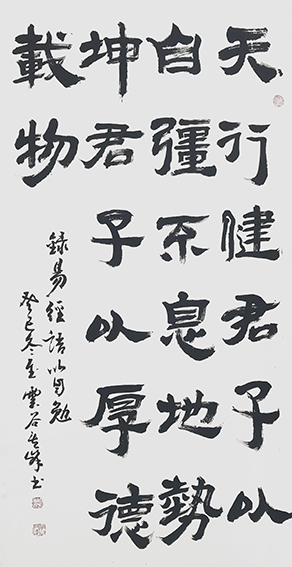 天行健君子以
自彊不息地勢
坤君子以厚德
載物
錄易經語以自勉
癸巳冬至雲谷峰书